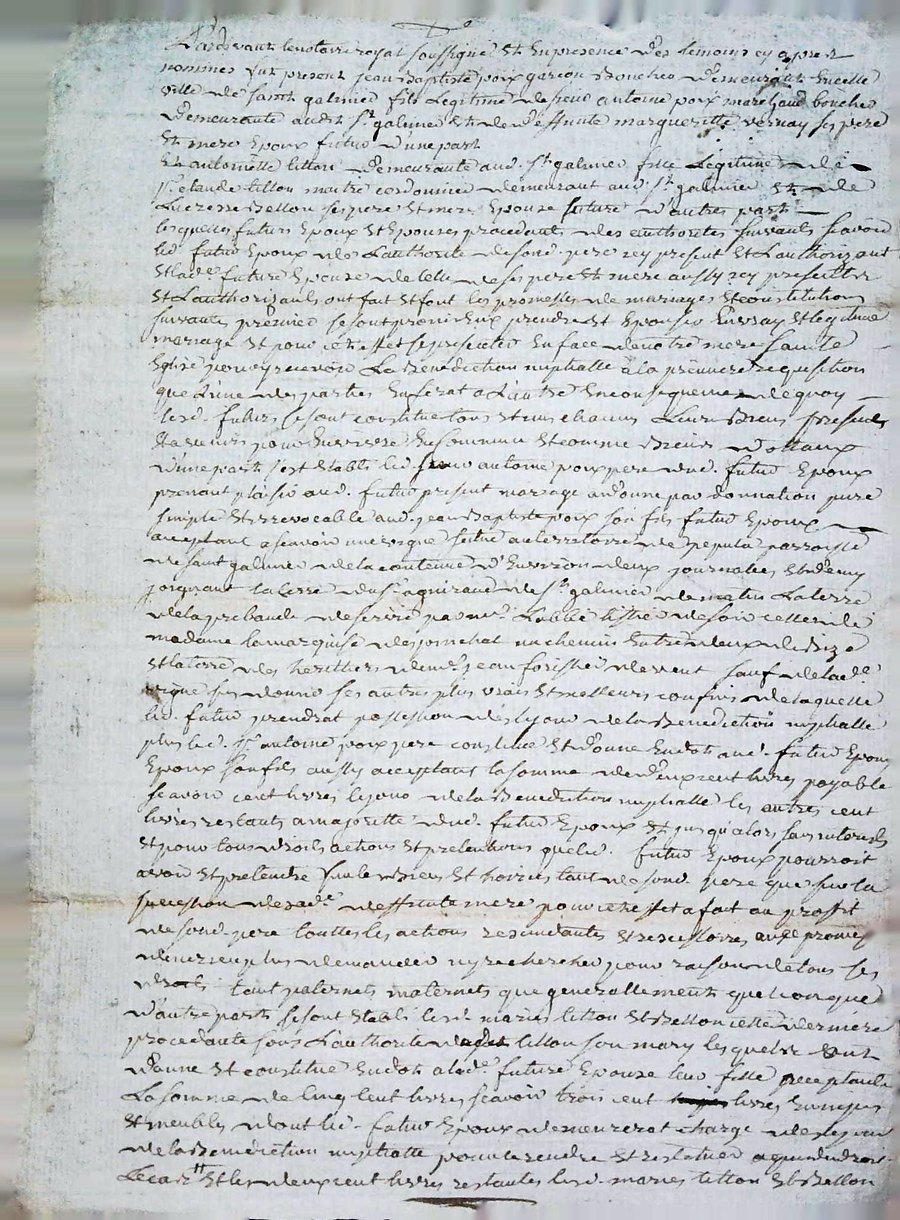 Pardevant le notaire royal soussigné et en presence des temoins cy apres
nommés fut present jean Baptiste poix garcon Boucher demeurant en cette
ville de saint galmier fils Legitime de sieur antoine poix marchand boucher
demeurante audit St galmier et de deffunte marguerette vernay ses pere
et mere Epoux futur d'une part
Et antoinette tillon demeurante aud. St galmier fille Legitime de
sr. claude tillon maitre cordonnier demeurant aud St galmier et de
Lucresse Bellon ses pere et mere Epouse future d'autre part
lesquels futurs Epoux et Epouses procedants des authorités suivants scavoir
led. futur Epoux de L'authorité de sond. pere icy present et L'authorizant
et lade. future Epouse de celle de ses pere et mere aussy icy presents
et L'authorizants ont fait et font les promesses de mariages et constitutions
suivants premier se sont promis Eux prendre et Epouser En vray et legitime
mariage et pour cet Effet se presenter En face de notre mere sainte
Eglise pour y recevoir La Benediction nuptialle a la premiere requisition
que L'une des parties En ferat a L'autre En consequence de quoy
lesd. futurs se sont constitué tous et uns chacuns Leurs Biens presents
et avenirs pour En Commun et comme Biens Dottaux
D'une part s'est Etabli led sieur antoine poix pere dud. futur Epoux
prenant plaisir aud. futur present mariage a donné par donnation pure
simple et irrevocable aud. jean Baptiste poix son fils futur Epoux
acceptant a scavoir une vigne situé au territoire de paroisse
de saint galmier de la contenue d'Environ deux journalées et demy
joignant la terre du sr. de St galmier de matin La terre
de la prebande de par mr. L'abbé de soir celle de
madame la marquise de un chemin Entre deux de Bize
et la terre des heritiers de mr. jean de vent sauf de lade
vigne ses autres plus vrais et meilleurs confins de laquelle
led. futur prendrat possession des le jour de la Benediction nuptialle
plus led. sr antoine poix pere constitue et donne En dot aud. futur Epoux
Epoux son fils aussy acceptant la somme de deux cent livres payable
scavoir cent livres le jour de la Benediction nuptialle les autres cent
livres restants a majorité dud. futur Epoux et jusqu'alors sans interets
et pour tous droits actions et pretentions que led. futur Epoux pourroit
avoir et pretendre sur les Biens et hoiries tant de sond. pere que sur la
succession de sade. deffunte mere pour cet Effet a fait au proffit
de sond. pere touttes les actions rescindantes et rescissoires avec promes
de ne rien plus demander ny rechercher pour raison de tous ses
droits tant paternels maternels que generallement quelconque
D'autre part se sont Etabli lesd. mariés tillon et Bellon cette derniere
procedante sous L'authorité dudit tillon son mary lesquels ont
donné et constitué En dot a lade. future Epouse leur fille acceptante
La somme de Cinq Cent livres scavoir trois cent livres En
et meubles dont led. futur Epoux demeurerat chargé des le jour
de la Benediction nuptialle pour le rendre et restituer a qui de droit
Le cas et les deux cent livres restantes lesd. mariés tillon et Bellon